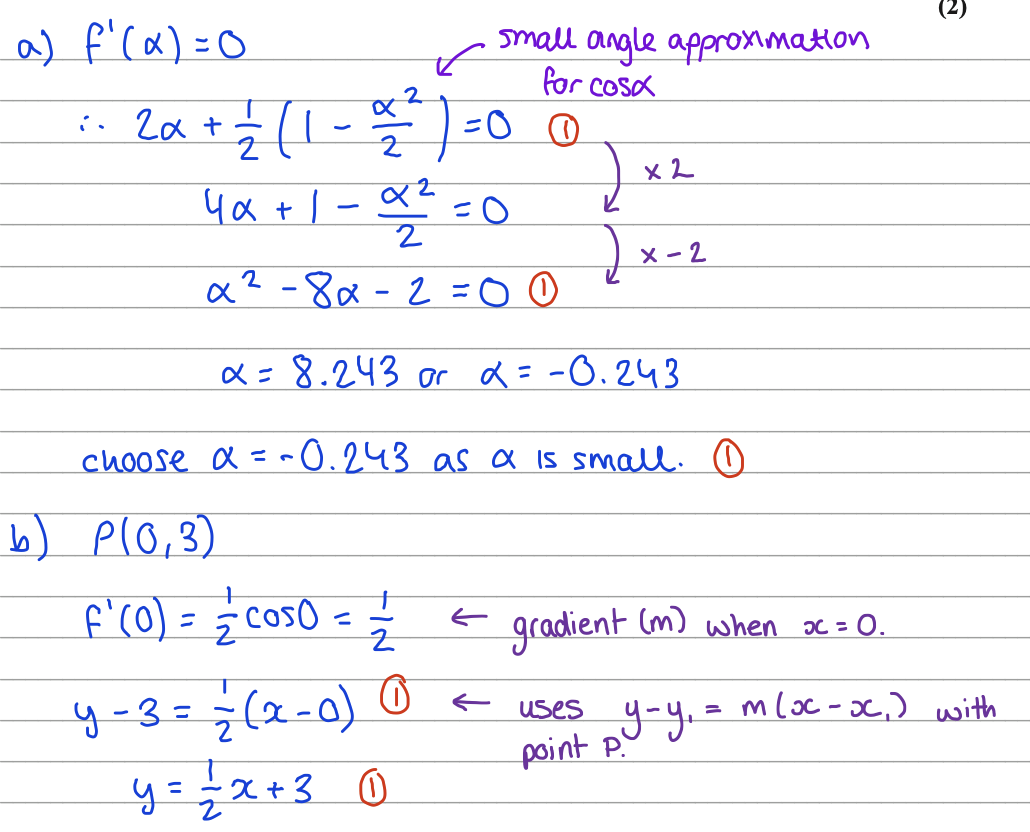 (2)
a) f'(α) = 0
small angle approximation
for cosα
∴ 2α + 1/2 (1 - α²/2) = 0 ①
x 2
4α + 1 - α²/2 = 0
x - 2
α² - 8α - 2 = 0 ①
α = 8.243 or α = -0.243
choose α = -0.243 as α is small. ①
b) P(0,3)
f'(0) = 1/2 cos0 = 1/2 ← gradient (m) when x = 0.
y - 3 = 1/2 (x - 0) ① ← uses y - y₁ = m(x - x₁) with
point P.
y = 1/2 x + 3 ①